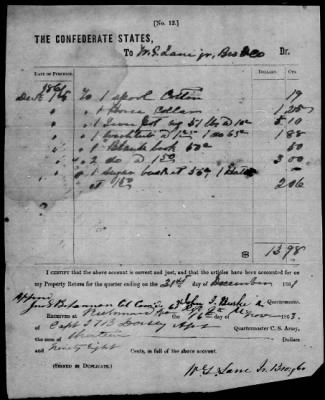 [No. 12.]
THE CONFEDERATE STATES,
To W. L. Lane jr, Bro & Co Dr.
DATE OF PURCHASE. DOLLARS. CTS.
1861
To 1 spool Cotton 19
" 1 Horse Collar 1 25
" 1 Iron Pot 51 lbs @ 10c 5 10
" 1 1 do 1 88
" 1 Blank book 50c 50
" 2 do @ 150 3 00
" 1 Sugar bucket 56c, 1
at 150 2 06
$ 13 98
I CERTIFY that the above account is correct and just, and that the articles have been accounted for on
my Property Return for the quarter ending on the 31st day of December 1861
Quartermaster.
RECEIVED at Richmond the 16th day of 1863,
of Capt Quartermaster C. S. Army,
the sum of Thirteen Dollars
and Ninety Eight Cents, in full of the above account.
(SIGNED IN DUPLICATE.)
W. L. Lane Jr. Bro & Co